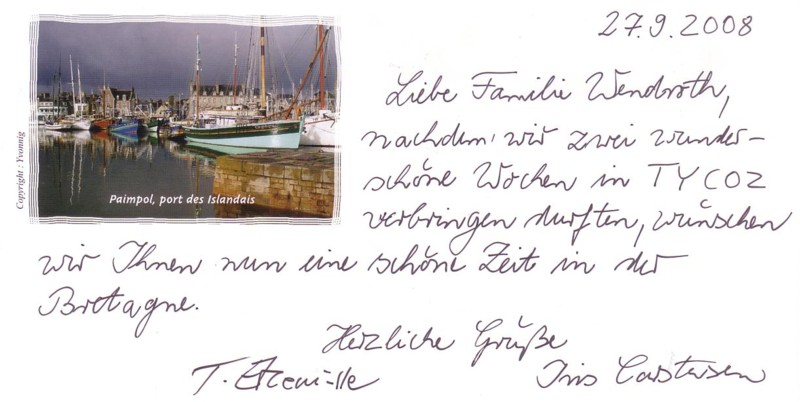 27.9.2008
Copyright : Yvonnig
Paimpol, port des Islandais
Liebe Familie Wendroth,
nachdem wir zwei wunder-
schöne Wochen in TYCOZ
verbringen durften, wünschen
wir Ihnen nun eine schöne Zeit in der
Bretagne.
Herzliche Grüße
T. Iris Carstensen